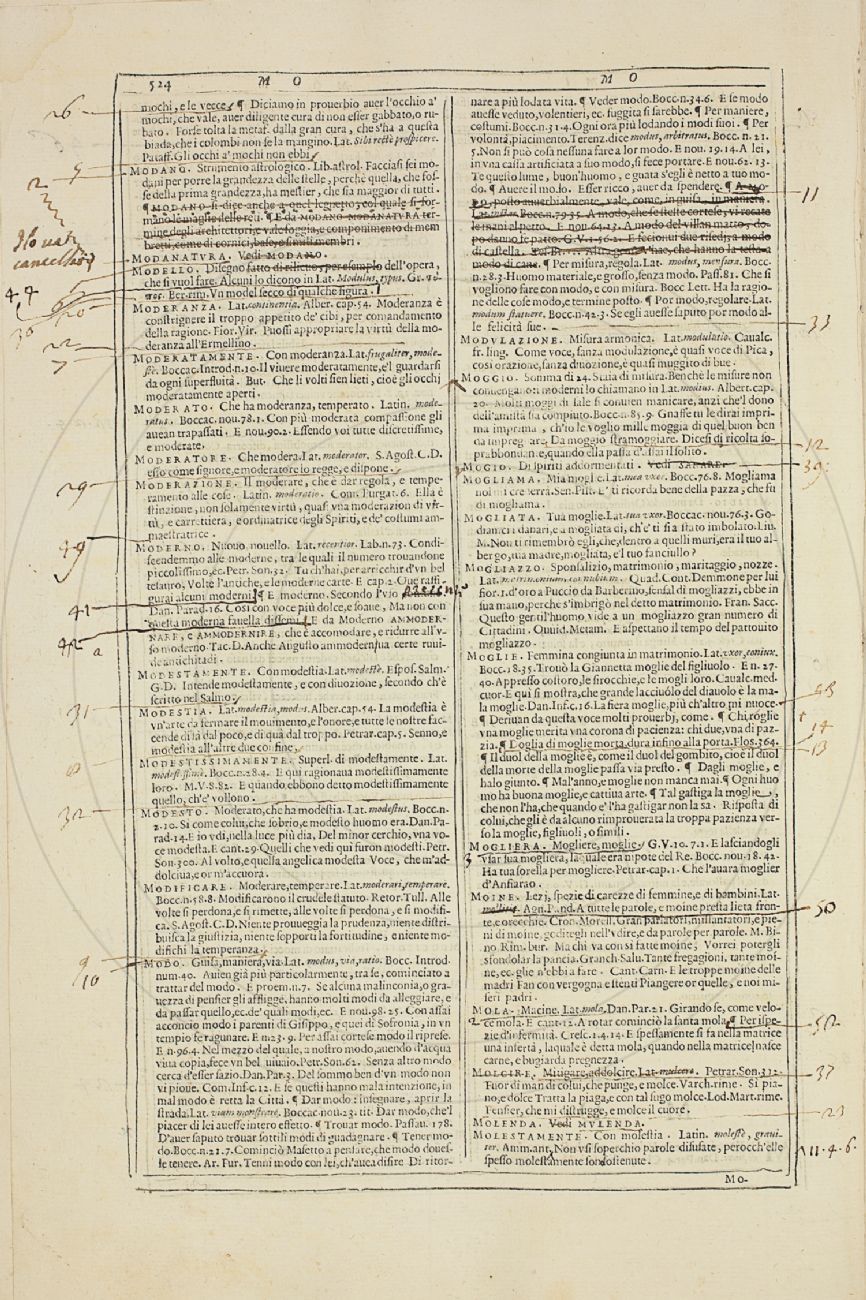 524 M O
M O
mochi, e le vecce ¶ Diciamo in prouerbio auer l'occhio a'
mochi, che vale, auer diligente cura di non esser gabbato, o ru-
bato. Forse tolta la metaf. dalla gran cura, che s'ha a questa
biada, che i colombi non se la mangino. Lat. Sibi recte prospicere.
Pataff. Gli occhi a' mochi non ebbi
MODANO. Strumento astrologico. Lib. astrol. Facciasi sei mo-
dani per porre la grandezza delle stelle, perchè quella, che fos-
se della prima grandezza, ha mestier, che sia maggior di tutti.
¶ MODANO si dice anche a quel legretto, col quale si for-
mano le maglie delle reti. ¶ E da MODANO MODANATVRA ter-
mine degli architettori, e vale foggia, e componimento di mem
bretti, come di cornici, base, o simili membri.
MODANATVRA. Vedi MODANO.
MODELLO. Disegno fatto di rilieuo, per esemplo dell'opera,
che si vuol fare. Alcuni lo dicono in Lat. Modulus, typus. Gr.
Ber. rim. Vn model secco di qualche figura.
MODERANZA. Lat. continentia. Alber. cap. 54. Moderanza è
constrignere il troppo appetito de' cibi, per comandamento
della ragione. Fior. Vir. Puossi appropriare la virtù della mo-
deranza all'Ermellino.
MODERATAMENTE. Con moderanza. Lat. frugaliter, mode-
stè. Boccac. Introd. n. 10. Il viuere moderatamente, e'l guardarsi
da ogni superfluità. But. Che li volti sien lieti, cioè gli occhi
moderatamente aperti.
MODERATO. Che ha moderanza, temperato. Latin. mode-
ratus. Boccac. nou. 78. 1. Con più moderata compassione gli
auean trapassati. E nou. 90. 2. Essendo voi tutte discretissime,
e moderate.
MODERATORE. Che modera. Lat. moderator. S. Agost. C. D.
esso come signore, e moderatore lo regge, e dispone.
MODERAZIONE. Il moderare, che è dar regola, e tempe-
ramento alle cose. Latin. moderatio. Com. Purgat. 6. Ella è
stinzione, non solamente virtù, quasi vna moderazion di vir-
tù, e carrettiera, e ordinatrice degli Spiriti, e de' costumi am-
maestratrice.
MODERNO. Nuouo nouello. Lat. recentior. Lab. n. 73. Condi-
scendemmo alle moderne, tra le quali il numero trouandone
piccolissimo, ec. Petr. Son. 32. Tu ch'hai, per arricchir d'vn bel
tesauro, Volte l'antiche, e le moderne carte. E cap. 2. Oue raffi-
gurai alcuni moderni ¶ E moderno. Secondo l'vso
Dan. Parad. 16. Così con voce più dolce, e soaue, Ma non con
questa moderna fauella dissemi. E da Moderno AMMODER-
NARE, e AMMODERNIRE, che è accomodare, e ridurre all'v-
so moderno. Tac. D. Anche Augusto ammodernsua certe ruui-
de antichitadi.
MODESTAMENTE. Con modestia. Lat. modestè. Espos. Salm.
G. D. Intende modestamente, e con diuozione, secondo ch'è
scritto nel Salmo.
MODESTIA. Lat. modestia, modus. Alber. cap. 54. La modestia è
vn'arte da fermare il mouimento, e l'onore, e tutte le nostre fac-
cende di là dal poco, e di quà dal troppo. Petrar. cap. 5. Senno, e
modestia all'altre due confine,
MODESTISSIMAMENTE. Superl. di modestamente. Lat.
modestissimè. Bocc. n. 28. 4. E qui ragionaua modestissimamente
loro. M. V. 8. 82. E quando ebbono detto modestissimamente
quello, ch'e' vollono.
MODESTO. Moderato, che ha modestia. Lat. modestus. Bocc. n.
2. 10. Si come colui, che sobrio, e modesto huomo era. Dan. Pa-
rad. 14. E io vdi, nella luce più dia, Del minor cerchio, vna vo-
ce modesta. E cant. 29. Quelli che vedi qui furon modesti. Petr.
Son. 300. Al volto, e quella angelica modesta Voce, che m'ad-
dolciua, e or m'accuora.
MODIFICARE. Moderare, temperare. Lat. moderari, temperare.
Bocc. n. 58. 8. Modificarono il crudele statuto. Retor. Tull. Alle
volte si perdona, e si rimette, alle volte si perdona, e si modifi-
ca. S. Agost. C. D. Niente prouueggia la prudenza, niente distri-
buisca la giustizia, niente sopporti la fortitudine, o niente mo-
difichi la temperanza.
MODO. Guisa, maniera, via. Lat. modus, via, ratio. Bocc. Introd.
num. 40. Auien già più particolarmente, tra se, cominciato a
trattar del modo. E proem. n. 7. Se alcuna malinconia, o gra-
uezza di pensier gli affligge, hanno molti modi da alleggiare, e
da passar quello, ec. de' quali modi, ec. E nou. 98. 25. Con assai
acconcio modo i parenti di Gisippo, e quei di Sofronia, in vn
tempio se ragunare. E n. 23. 9. Per assai cortese modo il riprese.
E n. 96. 4. Nel mezzo del quale, a nostro modo, auendo d'acqua
viua copia, fece vn bel viuaio. Petr. Son. 62. Senza altro modo
cerca d'esser sazio. Dan. Par. 3. Del sommo ben d'vn modo non
vi pioue. Com. Inf. c. 12. E se questi hanno mala intenzione, in
mal modo è retta la Città. ¶ Dar modo: insegnare, aprir la
strada. Lat. viam monstrare. Boccac. nou. 23. tit. Dar modo, che'l
piacer di lei auesse intero effetto. ¶ Trouar modo. Passau. 178.
D'auer saputo trouar sottili modi di guadagnare. ¶ Tener mo-
do. Bocc. n. 21. 7. Cominciò Masetto a pensare, che modo doues-
se tenere. Ar. Fur. Tenni modo con lei, ch'auea disire Di ritor-
nare a più lodata vita. ¶ Veder modo. Bocc. n. 34. 6. E se modo
auesse veduto, volentieri, ec. fuggita si sarebbe. ¶ Per maniere,
costumi. Bocc. n. 31. 4. Ogni ora più lodando i modi suoi. ¶ Per
volontà, piacimento. Terenz. dice modus, arbitratus. Bocc. n. 21.
5. Non si può cosa nessuna fare a lor modo. E nou. 19. 14. A lei,
in vna cassa artificiata a suo modo, si fece portare. E nou. 62. 13.
Te questo lume, buon'huomo, e guata s'egli è netto a tuo mo-
do. ¶ Auere il modo. Esser ricco, auer da spendere. ¶ A MO-
DO, posto auuerbialmente, vale, come, in guisa, in maniera.
Lat. instar. Bocc. n. 79. 35. A modo, che se steste cortese, vi recate
le mani al petto. E nou. 64. 13. A modo del villan matto, do-
po danno fe patto. G. V. 1. 56. 2. E feciono i due risedj, a modo
di castella.
modo di cane. ¶ Per misura, regola. Lat. modus, mensura. Bocc.
n. 28. 3. Huomo materiale, e grosso, senza modo. Pass. 81. Che si
vogliono fare con modo, e con misura. Bocc. Lett. Ha la ragio-
ne delle cose modo, e termine posto. ¶ Por modo, regolare. Lat.
modum statuere. Bocc. n. 42. 3. Se egli auesse saputo por modo al-
le felicità sue.
MODVLAZIONE. Misura armonica. Lat. modulatio. Caualc.
fr. ling. Come voce, sanza modulazione, è quasi voce di Pica,
così orazione, sanza diuozione, è quasi muggito di bue.
MOGGIO. Somma di 24. Staia di misura. Benchè le misure non
conuengano: moderni lo chiamano in Lat. modius. Albert. cap.
20. Molti moggi di sale si conuien manicare, anzi che'l dono
dell'amistà sia compiuto. Bocc. n. 85. 9. Gnaffe tu le dirai impri-
ma imprima, ch'io le voglio mille moggia di quel buon ben
da impregnare. Da moggio stramoggiare. Dicesi di ricolta so-
prabbondante, quando ella passa d'assai il solito.
MOGIO. Di spiriti addormentati. Vedi SALARE.
MOGLIAMA. Mia moglie. Lat. mea vxor. Bocc. 76. 8. Mogliama
nol mi crederra. Sen. Pist. E' ti ricorda bene della pazza, che fu
di mogliama.
MOGLIATA. Tua moglie. Lat. tua vxor. Boccac. nou. 76. 3. Go-
diamci i danari, e a mogliata dì, ch'e' ti sia stato imbolato. Liu.
M. Non ti rimembrò egli, che, dentro a quelli muri, era il tuo al-
bergo, tua madre, mogliata, e'l tuo fanciullo?
MOGLIAZZO. Sponsalizio, matrimonio, maritaggio, nozze.
Lat. matrimonium, connubium. Quad. Cont. Demmone per lui
fior. 1. d'oro a Puccio da Barberino, sensal di mogliazzi, ebbe in
sua mano, perche s'imbrigò nel detto matrimonio. Fran. Sacc.
Questo gentil'huomo vide a un mogliazzo gran numero di
Cittadini. Ouid. Metam. E aspettano il tempo del pattouito
mogliazzo.
MOGLIE. Femmina congiunta in matrimonio. Lat. vxor, coniux.
Bocc. 18. 35. Trouò la Giannetta moglie del figliuolo. E n. 27-
40. Appresso costoro, le sirocchie, e le mogli loro. Caualc. med.
cuor. E qui si mostra, che grande lacciuolo del diauolo è la ma-
la moglie. Dan. Inf. c. 16. La fiera moglie, più ch'altro mi nuoce.
¶ Deriuan da questa voce molti prouerbj, come. ¶ Chi toglie
vna moglie merita vna corona di pacienza: chi due, vna di paz-
zia. ¶ Doglia di moglie morta, dura infino alla porta. Flos. 364.
¶ Il duol della moglie è, come il duol del gombito, cioè il duol
della morte della moglie passa via presto. ¶ Dagli moglie, e
halo giunto. ¶ Mal'anno, e moglie non manca mai. ¶ Ogni huo
mo ha buona moglie, e cattiua arte. ¶ Tal gastiga la moglie,
che non l'ha, che quando e' l'ha gastigar non la sa. Risposta di
colui, che gli è da alcuno rimprouerata la troppa pazienza ver-
so la moglie, figliuoli, o simili.
MOGLIERA. Mogliere, moglie. G. V. 10. 7. 1. E lasciandogli
vsar sua mogliera, la quale era nipote del Re. Bocc. nou. 18. 42.
Ha tua sorella per mogliere. Petrar. cap. 1. Che l'auara moglier
d'Anfiarao.
MOINE. Lezj, spezie di carezze di femmine, e di bambini. Lat.
Agn. Pand. A tutte le parole, e moine presta lieta fron-
te, e orecchie. Cron. Morell. Gran parlatori, millantatori, e pie-
ni di moine, goditegli nell'vdire, e da parole per parole. M. Bi-
no Rim. bur. Ma chi va con si fatte moine, Vorrei potergli
sfondolar la pancia. Granch. Salu. Tante fregagioni, tante moi-
ne, ec. che n'ebbi a fare. Cant. Carn. E le troppe moine delle
madri Fan con vergogna e stenti Piangere or quelle, e noi mi-
seri padri.
MOLA. Macine. Lat. mola. Dan. Par. 21. Girando se, come velo-
ce mola. E cant. 12. A rotar cominciò la santa mola. ¶ Per ispe-
zie d'infermità. Cresc. 1. 4. 14. E spessamente si fa nella matrice
una infertà, laquale è detta mola, quando nella matrice nasce
carne, e bugiarda pregnezza.
MOLCIRE. Mitigare, addolcire. Lat. mulcere. Petrar. Son. 312.
Fuor di man di colui, che punge, e molce. Varch. rime. Si pia-
no, e dolce Tratta la piaga, e con tal sugo molce. Lod. Mart. rime.
Pensier, che mi distrugge, e molce il cuore.
MOLENDA. Vedi MVLENDA.
MOLESTAMENTE. Con molestia. Latin. molestè, graui-
ter. Amm. ant. Non vsi soperchio parole disusate, perocch'elle
spesso molestamente son sostenute.
Mo-
26
5
2
Ho uati
cancellato
22
7
29
39
41
42 a
31
8
32
9
10
11
33
12
39
14
13
50
52
37
23
11.4.6.